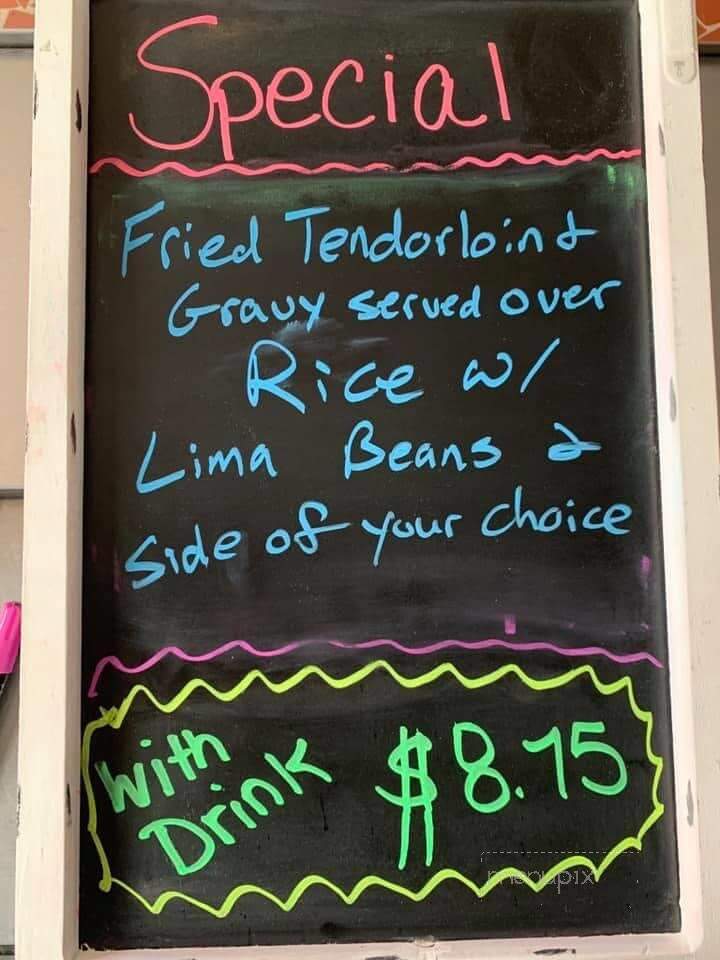 Special
Fried Tendorloin &
Gravy served over
Rice w/
Lima Beans &
Side of your choice
With
Drink $8.75
menupix